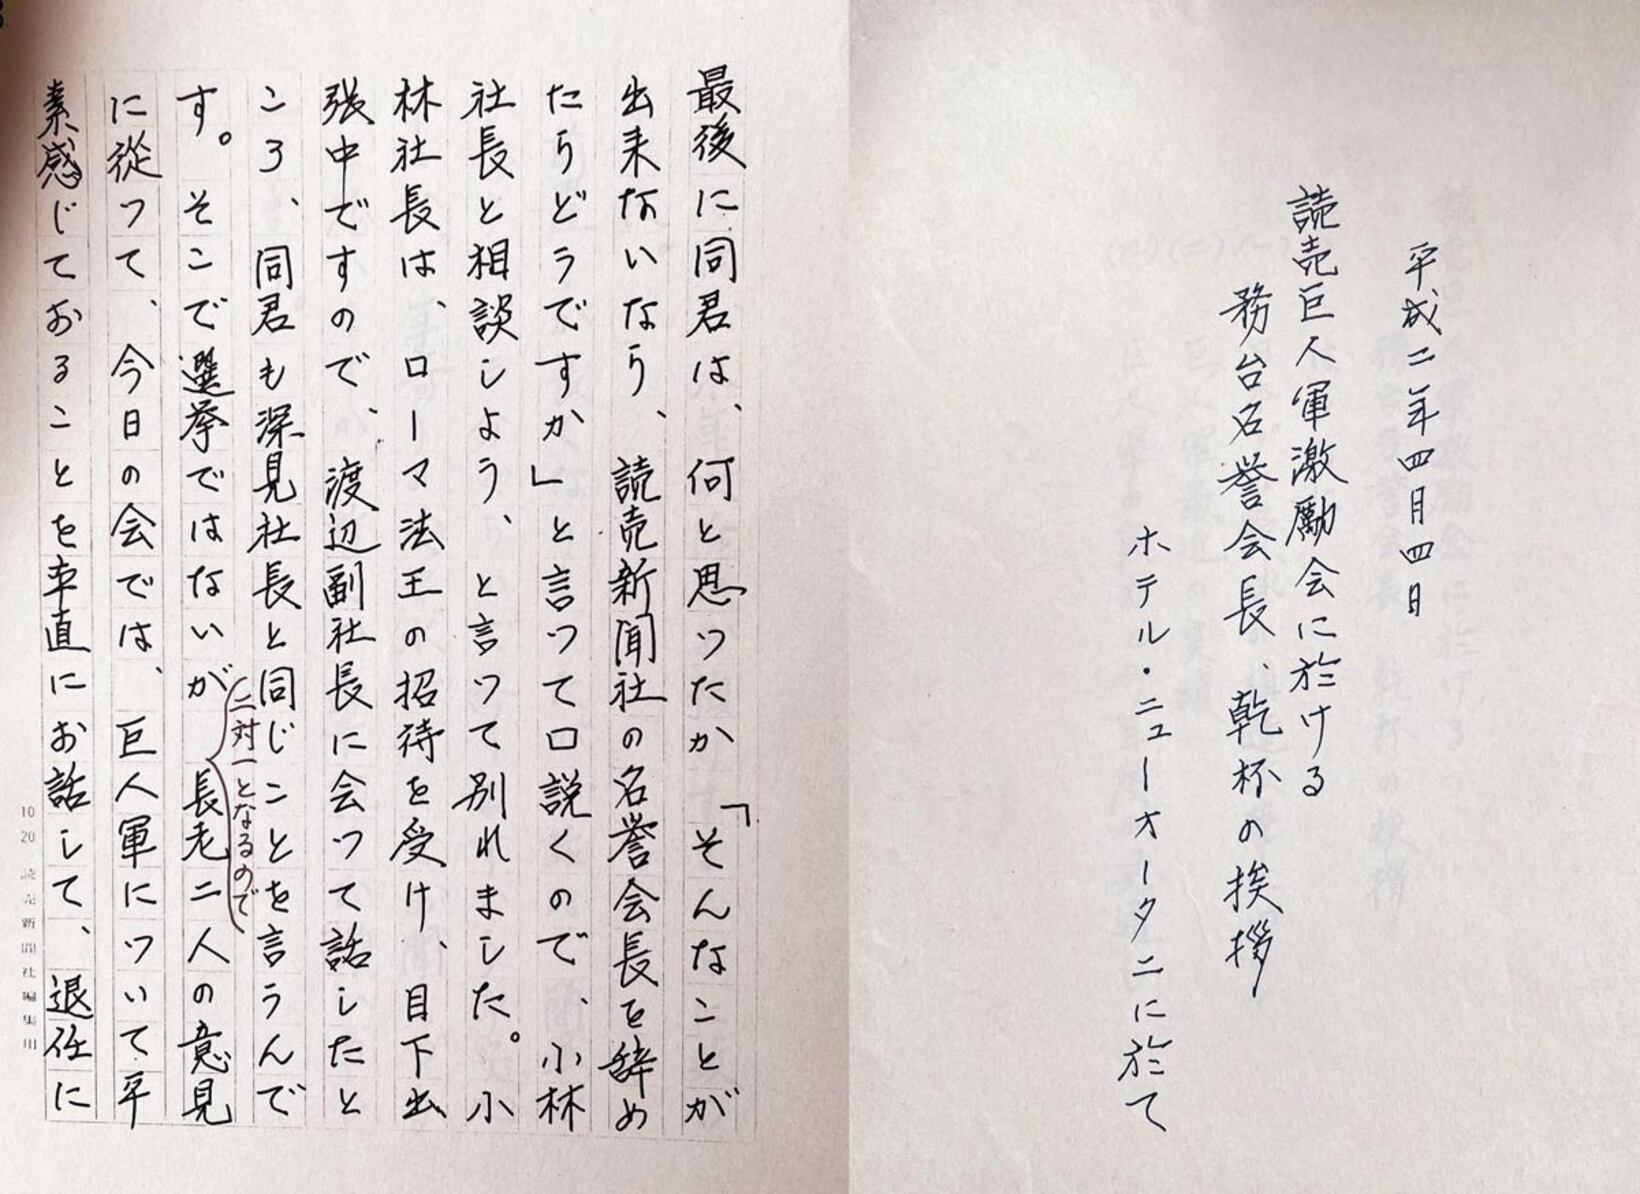 平成二年四月四日
読売巨人軍激励会に於ける
務台名誉会長、乾杯の挨拶
ホテル・ニューオータニに於て
最後に同君は、何と思ったか「そんなことが
出来ないなら、読売新聞社の名誉会長を辞め
たらどうですか」と言って口説くので、小林
社長と相談しよう、と言って別れました。小
林社長は、ローマ法王の招待を受け、目下出
張中ですので、渡辺副社長に会って話したと
ころ、同君も深見社長と同じことを言うんで
す。そこで選挙ではないが(二対一となるので)長老二人の意見
に従って、今日の会では、巨人軍について平
素感じておることを率直にお話して、退任に
10 20 読売新聞社編集用